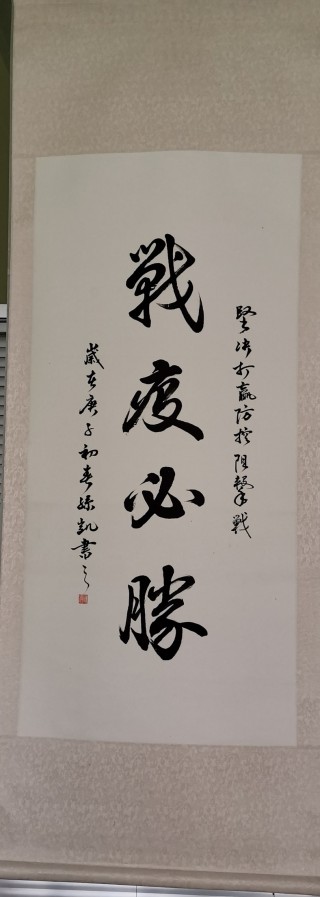 堅決打贏防控阻擊戰
戰疫必勝
歲在庚子初春孫凱書之